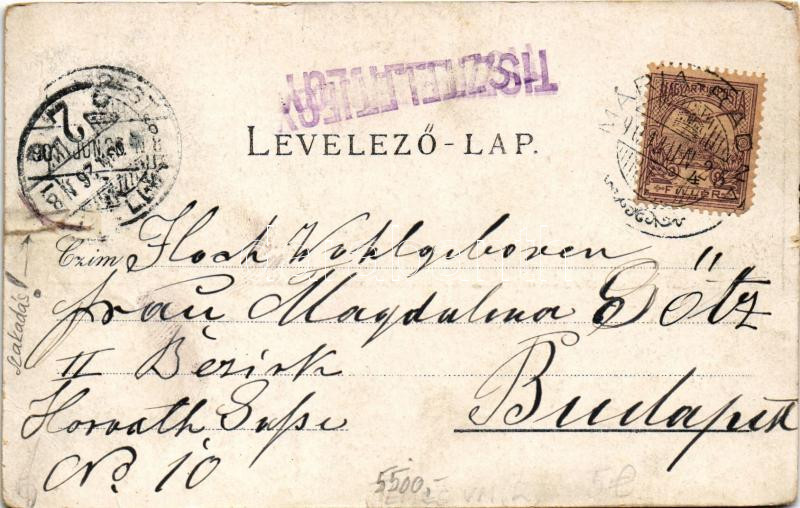 TISZTELETJEGY
LEVELEZŐ-LAP.
MÁRIA
MAGYAR KIR. POSTA
4
FILLÉR
Czim Hoch Wohlgeboren
frau Magdalena Götz
II Bezirk
Budapest
Horvath Gasse
No. 10
szakadás!
5500,-